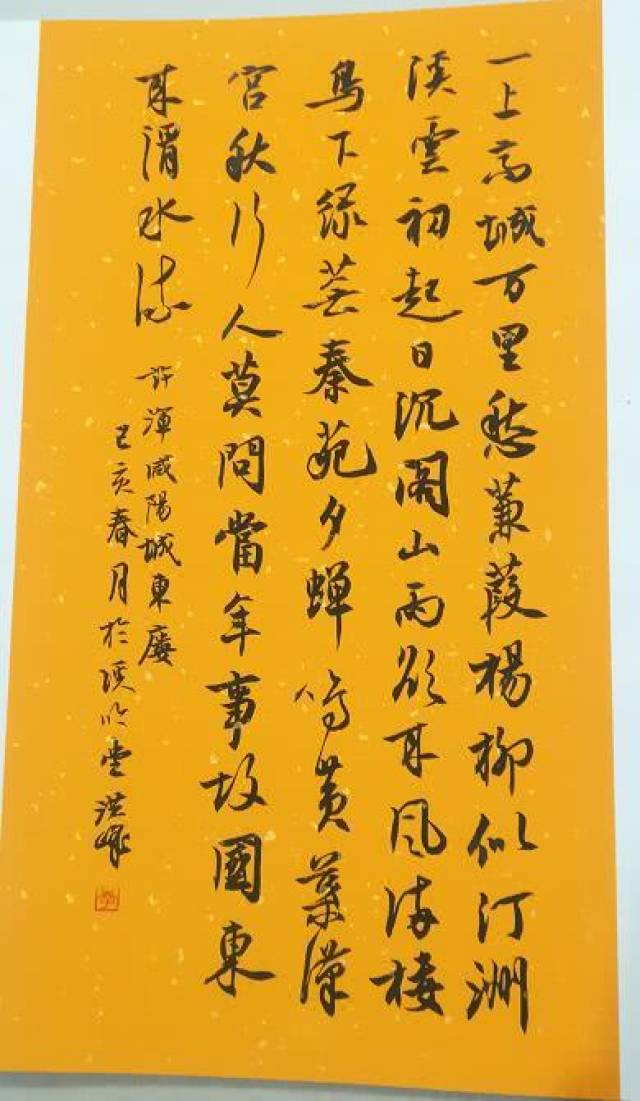 一上高城万里愁蒹葭楊柳似汀洲
溪雲初起日沉閣山雨欲来風满樓
鳥下绿芜秦苑夕蝉鸣黄葉漢
宫秋行人莫問當年事故國東
来渭水流
许渾咸陽城東廔
己亥春月於溪吟堂洪峰